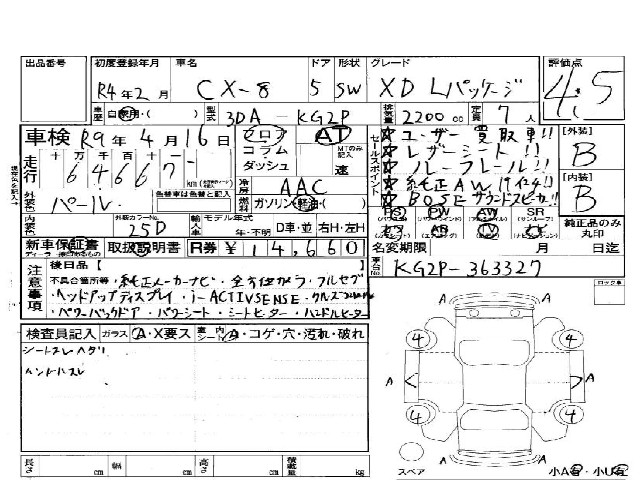 出品番号 初度登録年月 車名 ドア 形状 グレード 評価点
R4年2月 CX-8 5 SW XD Lパッケージ 4.5
車歴 自家用・( ) 型式 3DA-KG2P 排気量 2200 cc 定員 7人
車検 R9年4月16日 フロア コラム ダッシュ AT MTのみ記入 速
セールスポイント
☆ユーザー買取車!!
☆レザーシート!!
☆純正AW
☆BOSEサウンドスピーカー!!
[外装] B
[内装] B
走行 十万 万 千 百 十 一
64667 km
外装色 パール 色替車は色替と記入
冷房 AAC
燃料 ガソリン・軽油・( )
PS PW AW SR
TV ナビ
純正品のみ丸印
内装色 外装カラーNo. 25D 輸入車 モデル年式 年・不明 D車・並 右H・左H
新車保証書 取扱説明書 R券 ¥14,660 名変期限 月 日迄
注意事項 後日品【
不具合箇所等・純正メーカーナビ・全方位カメラ・フルセグ
・ヘッドアップディスプレイ・i-ACTIVSENSE
・パワーバックドア・パワーシート・シートヒーター・ハンドルヒーター
車台No. KG2P-363327
ロック車
検査員記入 ガラス A・X要ス 室内 シート A・コゲ・穴・汚れ・破れ
シートスレヘタリ
ハンドルスレ
A A
4 4
A A
4 4
A
スペア 小A有・小U有
長さ cm 幅 cm 高さ cm 積載量 kg